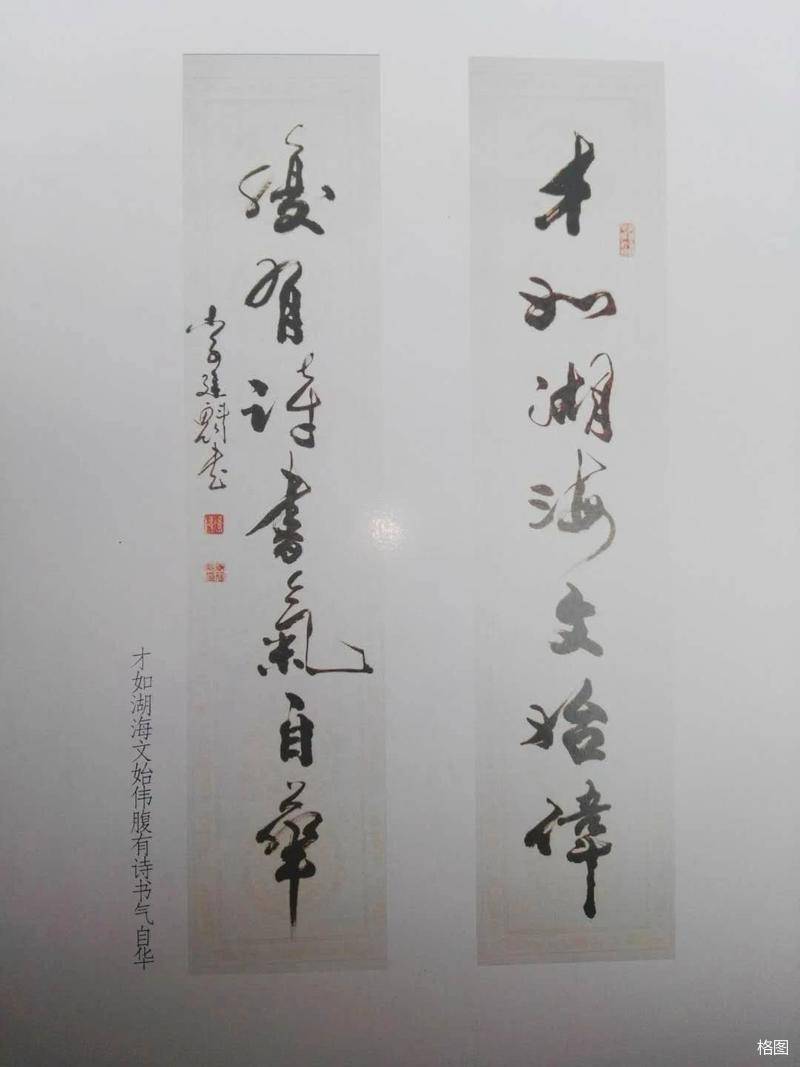 才如湖海文始偉
腹有詩書氣自華
常建魁书
才如湖海文始伟腹有诗书气自华
格图